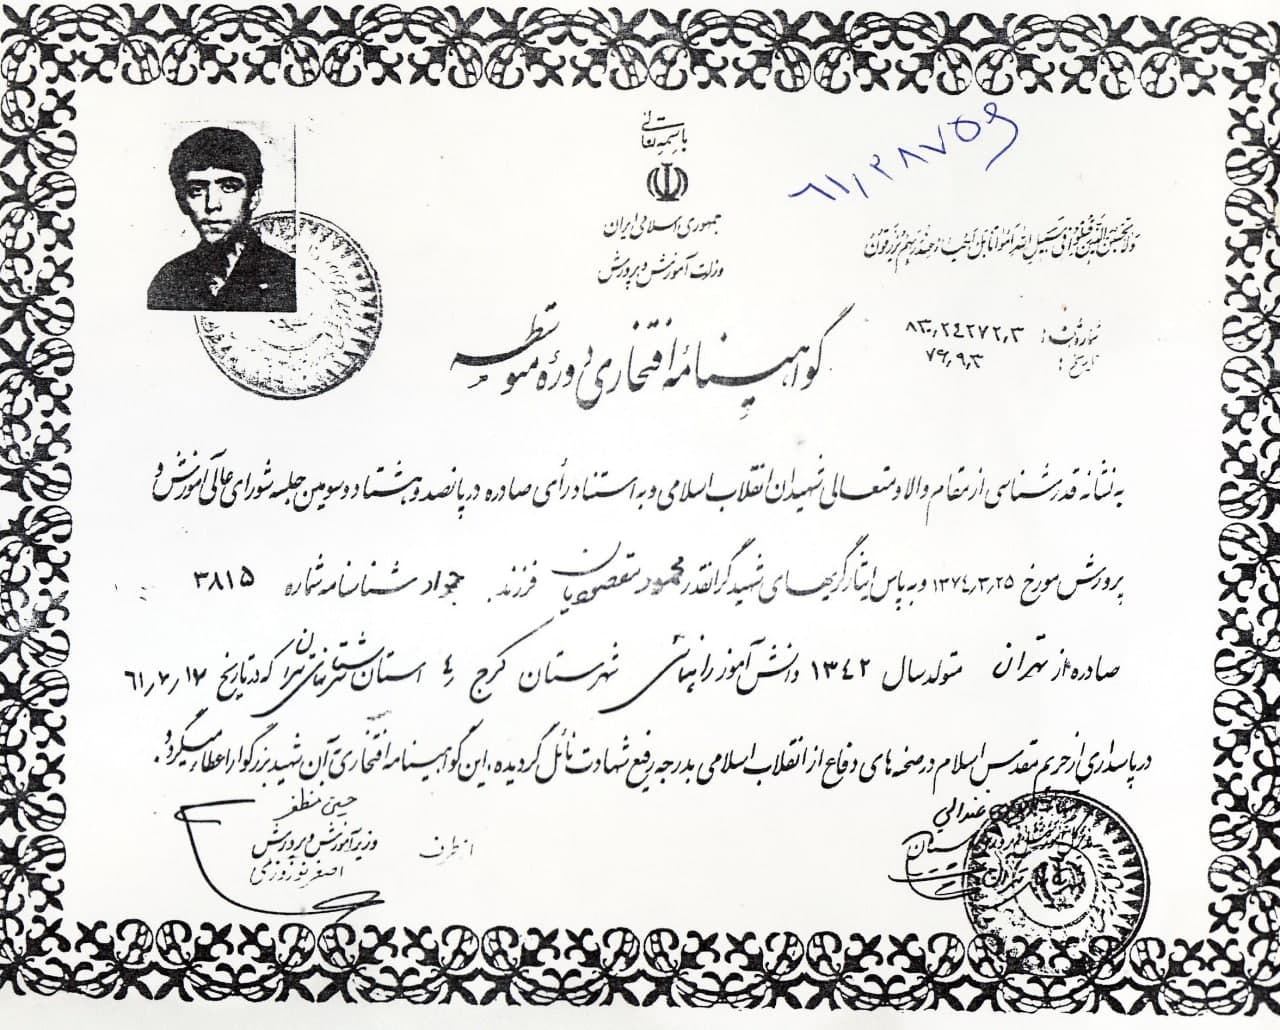 باسمه تعالی
جمهوری اسلامی ایران
وزارت آموزش و پرورش
۶۱/۲۸۷۵۶
ولا تحسبن الذین قتلوا فی سبیل الله امواتا بل احیاء عند ربهم یرزقون
شماره ثبت: ۸۳۰/۲۴۲۷۲/۳
تاریخ: ۷۹/۹/۳
گواهینامه افتخاری دوره متوسطه
به نشانه قدرشناسی از مقام والا و متعالی شهیدان انقلاب اسلامی و به استناد رأی صادره در پانصد و هشتاد و سومین جلسه شورای عالی آموزش و
پرورش مورخ ۱۳۷۴/۳/۲۵ و به پاس ایثارگریهای شهید گرانقدر محمود مقصودیان فرزند جواد شناسنامه شماره ۳۸۱۵
صادره از تهران متولد سال ۱۳۴۲ دانش آموز راهنمائی شهرستان کرج ۴ استان تهران که در تاریخ ۶۱/۲/۱۷
در پاسداری از حریم مقدس اسلام در صحنه های دفاع از انقلاب اسلامی بدرجه رفیع شهادت نائل گردیده، این گواهینامه افتخاری به آن شهید بزرگوار اعطاء میگردد.
حسین مظفر
وزیر آموزش و پرورش
از طرف
اصغر نوروزی
عندالی